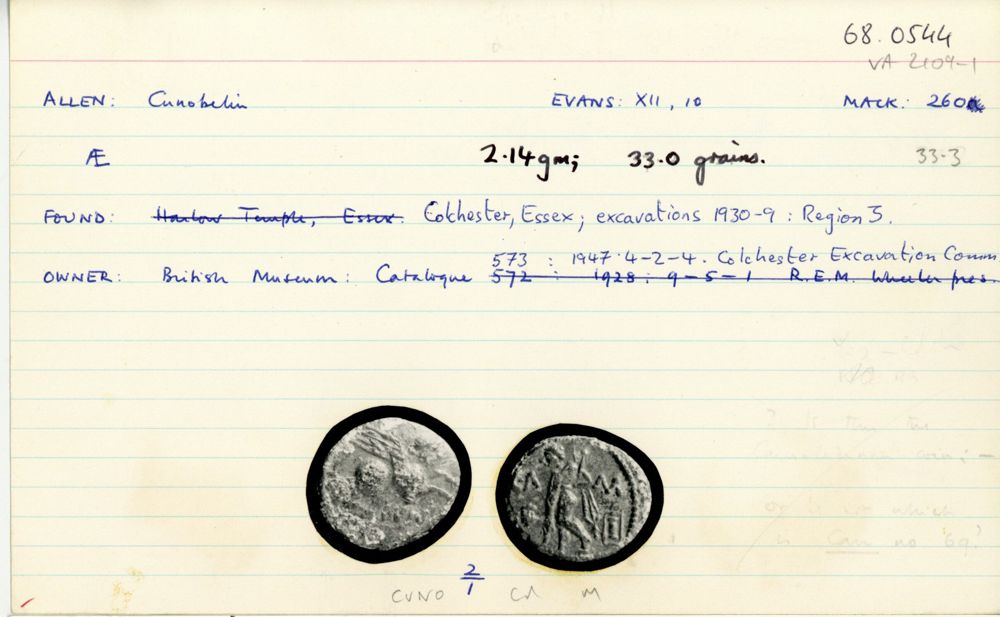 68.0544
VA 2109-1
ALLEN: Cunobelin EVANS: XII, 10 MACK: 260
Æ 2.14gm; 33.0 grains. 33.3
FOUND: Harlow Temple, Essex. Colchester, Essex; excavations 1930-9: Region 3.
573 : 1947.4-2-4. Colchester Excavation Comm
OWNER: British Museum: Catalogue 572 : 1928: 9-5-1 R.E.M. Wheeler pres.
which
no 69?
2/1
CUNO CA M